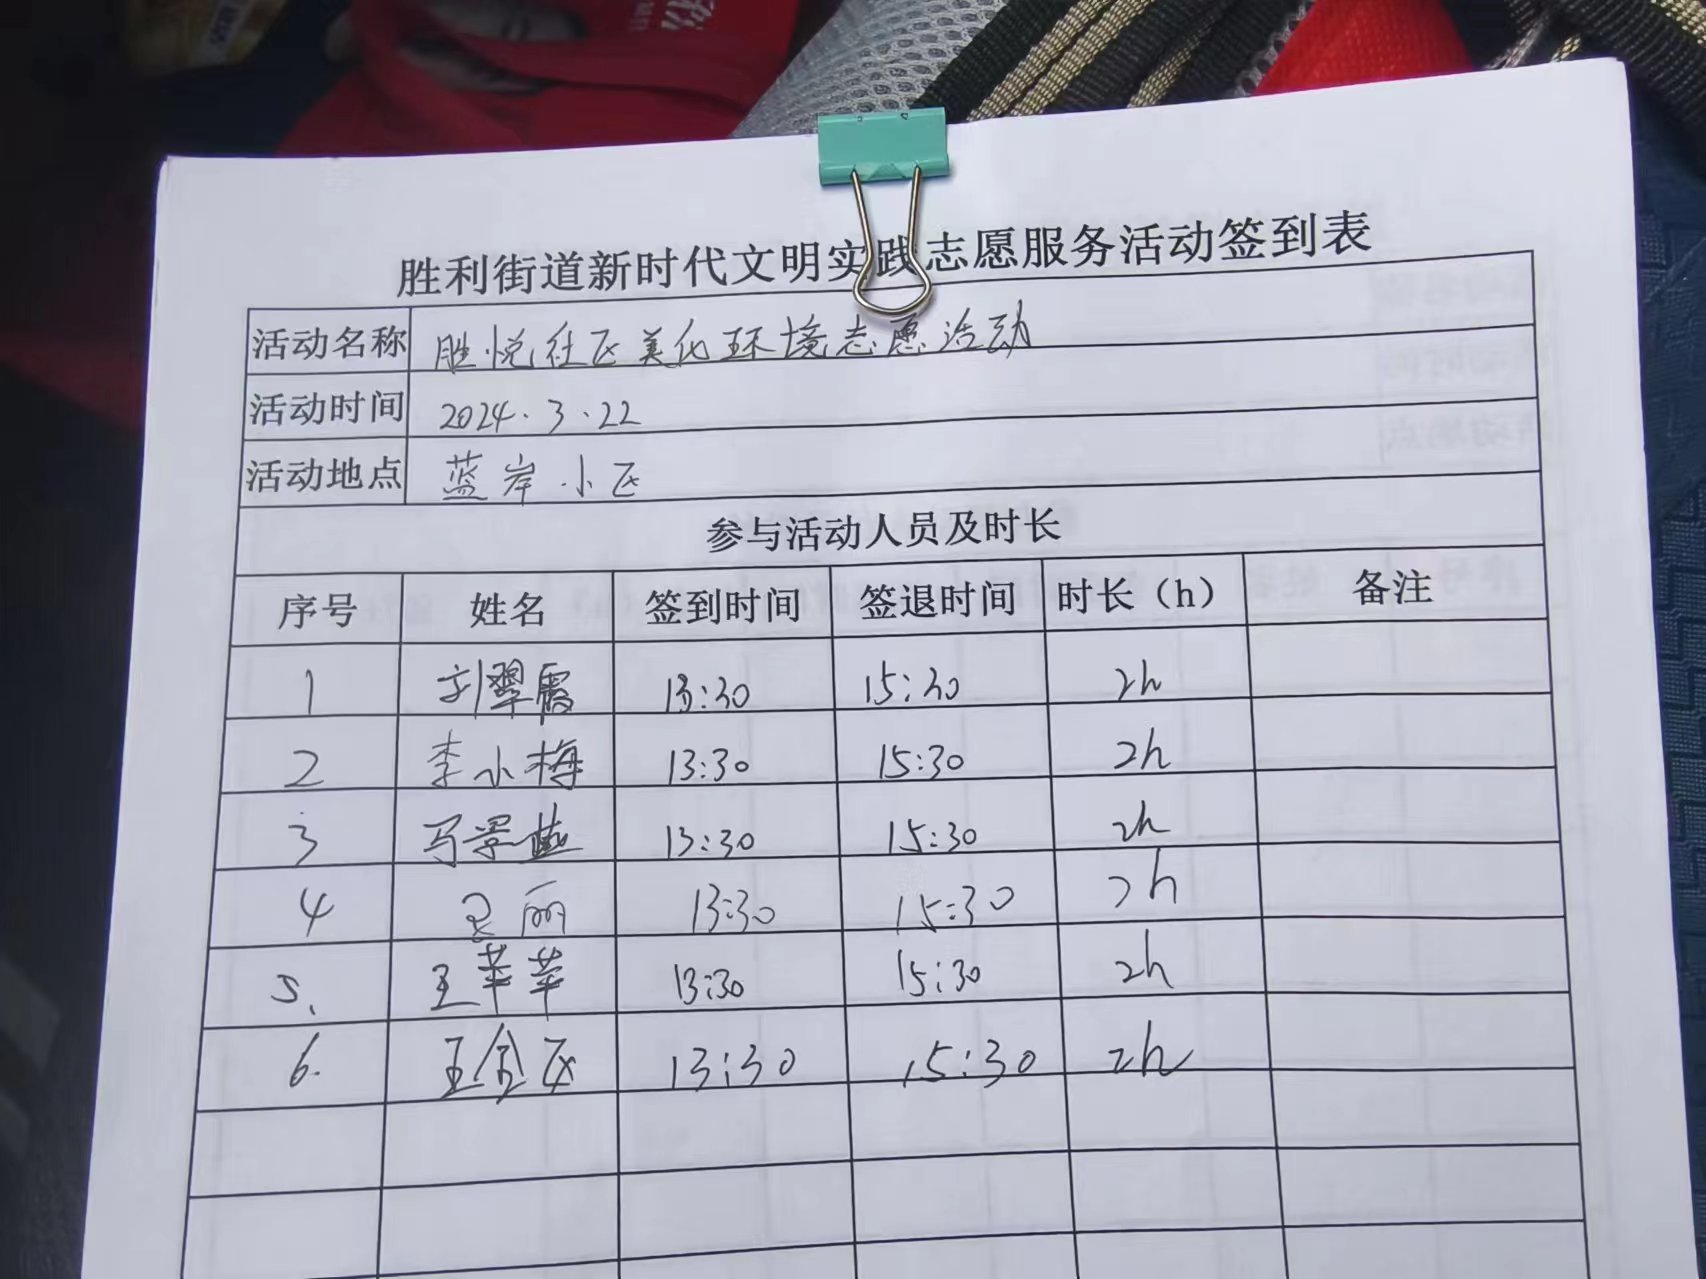 胜利街道新时代文明实践志愿服务活动签到表
活动名称 胜悦社区美化环境志愿活动
活动时间 2024.3.22
活动地点 蓝岸小区
参与活动人员及时长
序号 姓名 签到时间 签退时间 时长（h） 备注
1 刘翠霞 13:30 15:30 2h
2 李小梅 13:30 15:30 2h
3 13:30 15:30 2h
4 丽 13:30 15:30 2h
5. 王苹苹 13:30 15:30 2h
6. 王 13:30 15:30 2h